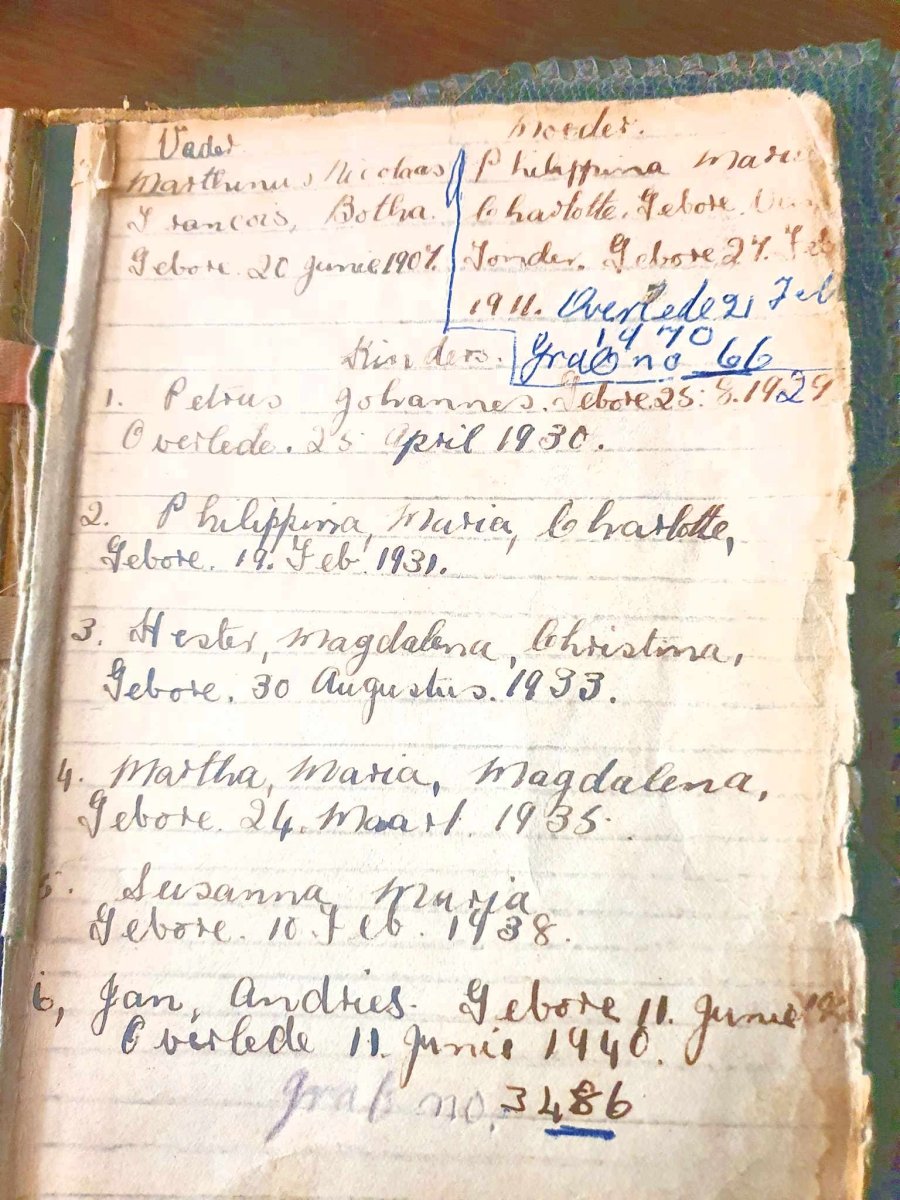 Vader
Marthinus Nicolaas
Francois, Botha.
Gebore. 20 Junie 1907.
Moeder.
Philippina Mari
Charlotte. Gebore.
Tonder. Gebore 27. Feb
1911. Overlede 21 Feb
1970
Graf no 66
Kinders.
1. Petrus Johannes. Gebore. 25. 8. 1929
Overlede. 25 April 1930.
2. Philippina, Maria, Charlotte,
Gebore. 19. Feb 1931.
3. Hester, Magdalena, Christina,
Gebore. 30 Augustus. 1933.
4. Martha, Maria, Magdalena,
Gebore. 24. Maart. 1935.
5. Susanna Maria
Gebore. 10. Feb. 1938.
6, Jan, Andries. Gebore 11. Junie
Overlede 11. Junie 1940.
Graf no. 3486